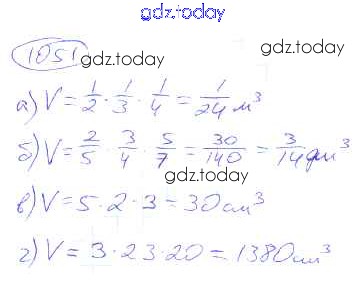 gdz.today
1051
gdz.today
gdz.today
а) V = 1/2 · 1/3 · 1/4 = 1/24 м³
б) V = 2/5 · 3/4 · 5/7 = 30/140 = 3/14 дм³
gdz.today
в) V = 5 · 2 · 3 = 30 см³
г) V = 3 · 23 · 20 = 1380 см³